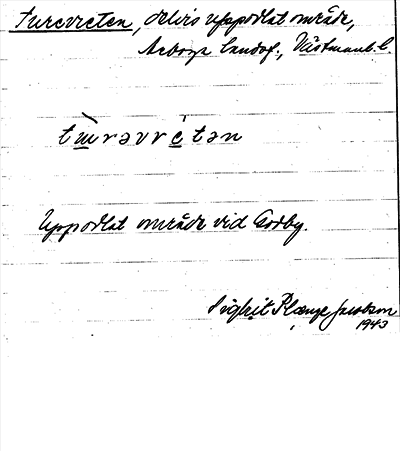 Turevreten, delvis uppodlat område,
Arboga landsf., Västmanl. l.
tu̲rəvre̲tən
Uppodlat område vid Godby.
Sigbrit Plænge Jacobson
1943